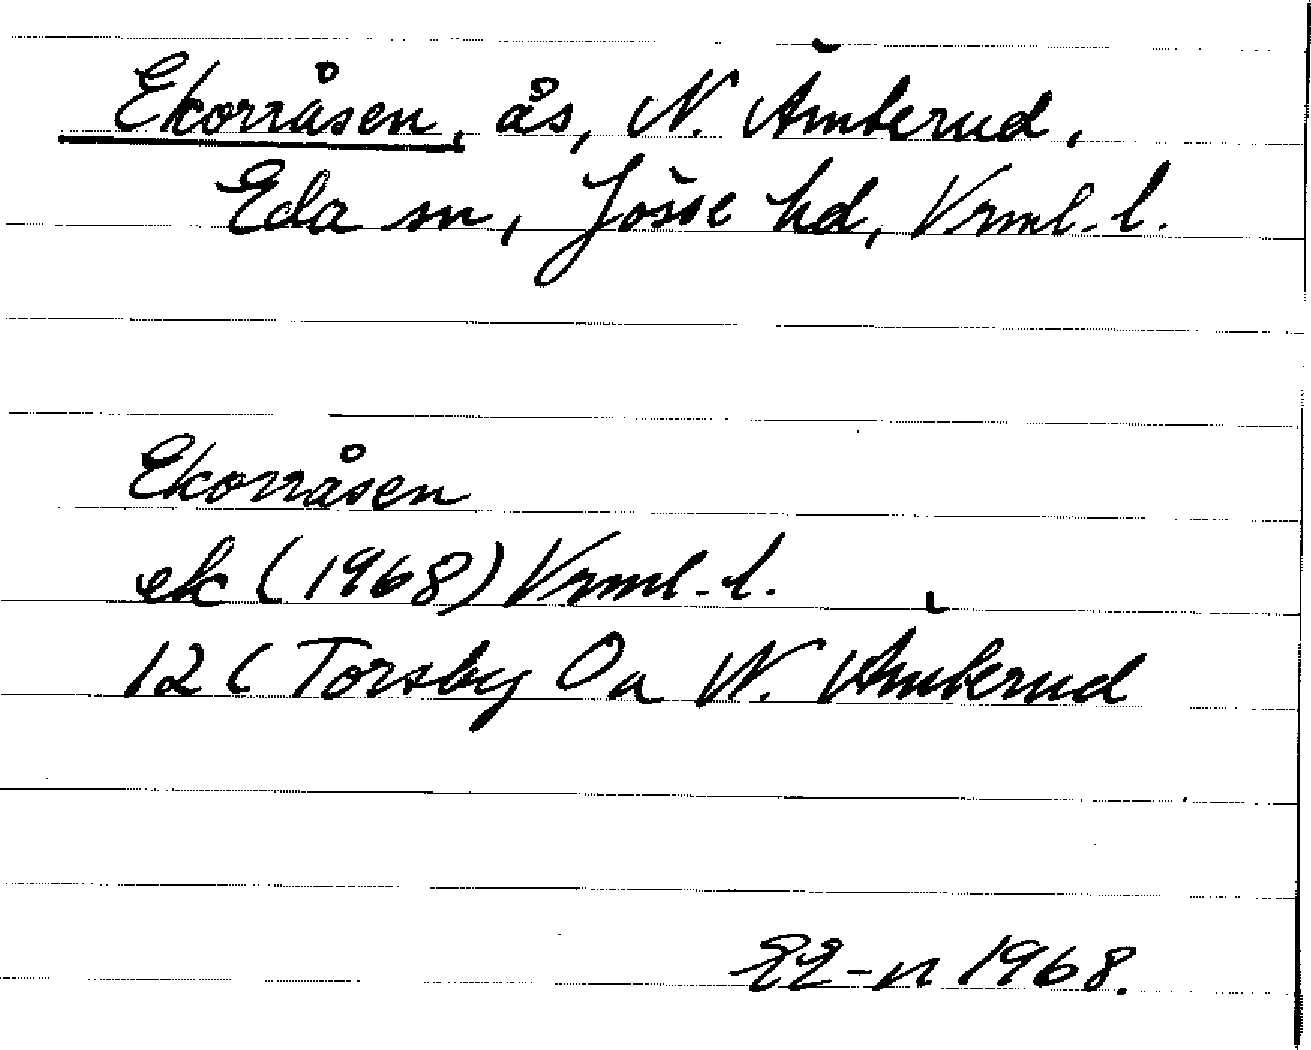 Ekorråsen, ås, N. Åmberud,
Eda sn, Jösse hd, Vrml. l.
Ekorråsen
ek (1968) Vrml. l.
12 C Torsby Oa N. Åmberud
EE-n 1968.